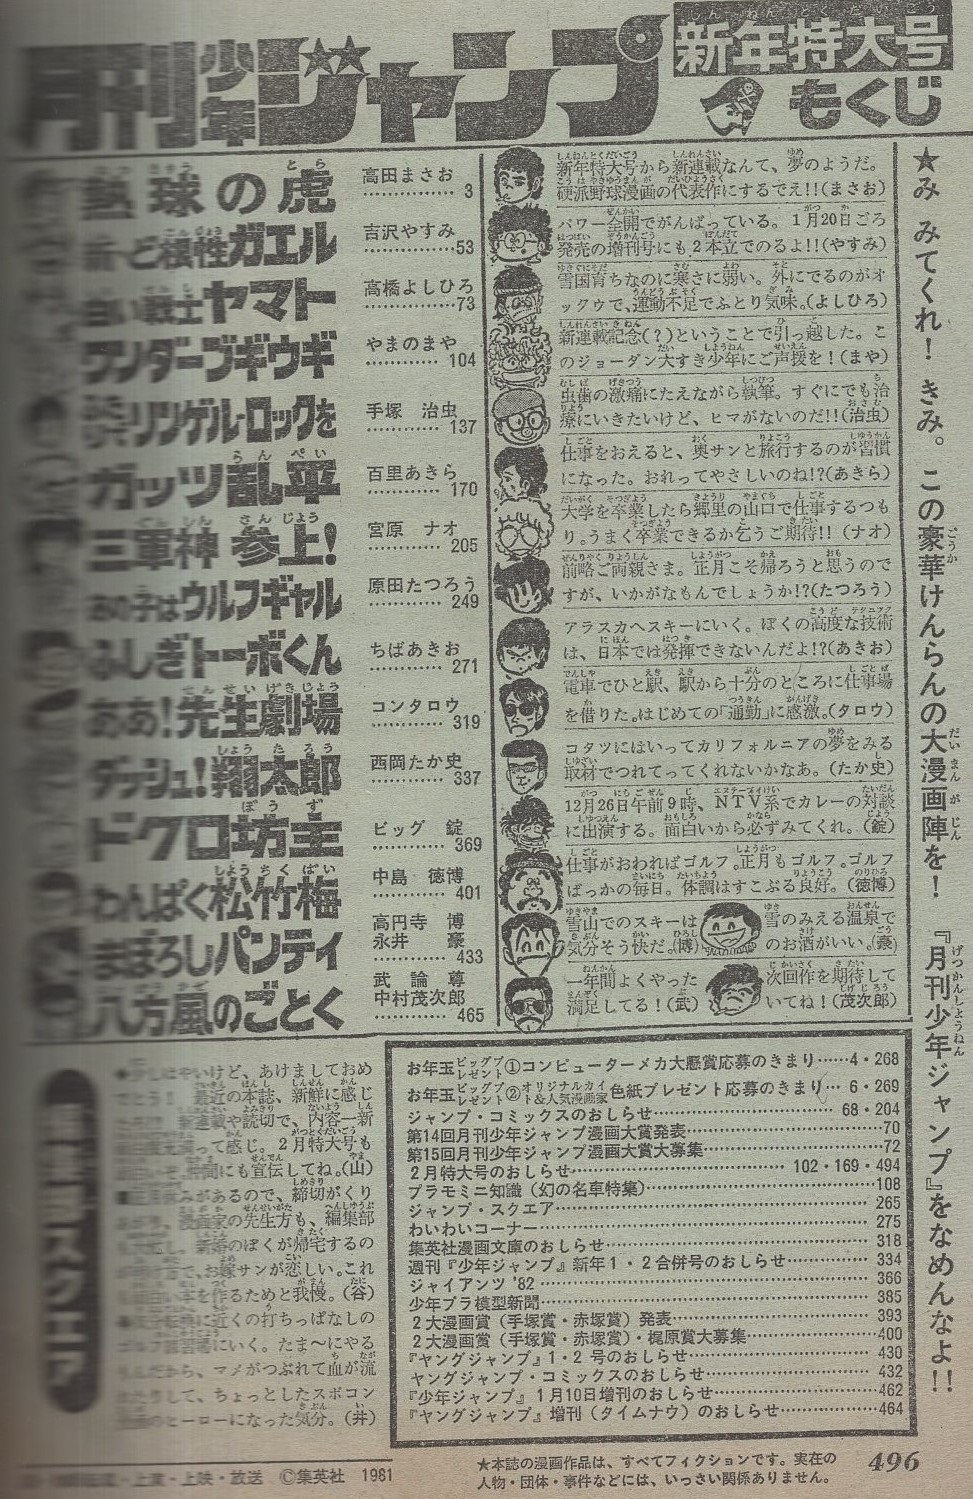 月刊少年ジャンプ
新年特大号
もくじ
熱球の虎 高田まさお 3
新・ど根性ガエル 吉沢やすみ 53
白い戦士ヤマト 高橋よしひろ 73
ワンダーブギウギ やまのまや 104
リンゲル・ロックを 手塚 治虫 137
ガッツ乱平 百里あきら 170
三軍神 参上! 宮原 ナオ 205
あの子はウルフギャル 原田たつろう 249
ふしぎトーボくん ちばあきお 271
ああ!先生劇場 コンタロウ 319
ダッシュ!翔太郎 西岡たか史 337
ドクロ坊主 ビッグ 錠 369
わんぱく松竹梅 中島 徳博 401
まぼろしパンティ 高円寺 博 永井 豪 433
八方風のごとく 武 論尊 中村茂次郎 465
新年特大号から新連載なんて、夢のようだ。
硬派野球漫画の代表作にするでえ!!(まさお)
パワー全開でがんばっている。1月20日ごろ
発売の増刊号にも2本立でのるよ!!(やすみ)
雪国育ちなのに寒さに弱い。外にでるのがオ
ックウで、運動不足でふとり気味。(よしひろ)
新連載記念(?)ということで引っ越した。こ
のジョーダン大すき少年にご声援を!(まや)
虫歯の激痛にたえながら執筆。すぐにでも治
療にいきたいけど、ヒマがないのだ!!(治虫)
仕事をおえると、奥サンと旅行するのが習慣
になった。おれってやさしいのね!?(あきら)
大学を卒業したら郷里の山口で仕事するつも
り。うまく卒業できるか乞うご期待!!(ナオ)
前略ご両親さま。正月こそ帰ろうと思うので
すが、いかがなもんでしょうか!?(たつろう)
アラスカへスキーにいく。ぼくの高度な技術
は、日本では発揮できないんだよ!?(あきお)
電車でひと駅、駅から十分のところに仕事場
を借りた。はじめての「通勤」に感激。(タロウ)
コタツにはいってカリフォルニアの夢をみる
取材でつれてってくれないかなあ。(たか史)
12月26日午前9時、NTV系でカレーの対談
に出演する。面白いから必ずみてくれ。(錠)
仕事がおわればゴルフ。正月もゴルフ。ゴルフ
ばっかの毎日。体調はすこぶる良好。(徳博)
雪山でのスキーは
気分そう快だ。(博)
雪のみえる温泉で
のお酒がいい。(豪)
一年間よくやった
満足してる!(武)
次回作を期待して
いてね!(茂次郎)
★み みてくれ! きみ。この豪華けんらんの大漫画陣を! 『月刊少年ジャンプ』をなめんなよ!!
はやいけど、あけましておめ
でとう! 最近の本誌、新鮮に感じ
新連載や読切で、内容一新
って感じ。2月特大号も
仲間にも宣伝してね。(山)
みがあるので、締切がくり
漫画家の先生方も、編集部
新婚のぼくが帰宅するの
で、お嫁サンが恋しい。これ
本を作るためと我慢。(谷)
に近くの打ちっぱなしの
にいく。たま〜にやる
だから、マメがつぶれて血が流
して、ちょっとしたスポコン
のヒーローになった気分。(井)
お年玉ビッグプレゼント①コンピューターメカ大懸賞応募のきまり……4・268
お年玉ビッグプレゼント②オリジナルカイト&人気漫画家色紙プレゼント応募のきまり…6・269
ジャンプ・コミックスのおしらせ……68・204
第14回月刊少年ジャンプ漫画大賞発表……70
第15回月刊少年ジャンプ漫画大賞大募集……72
2月特大号のおしらせ……102・169・494
プラモミニ知識(幻の名車特集)……108
ジャンプ・スクエア……265
わいわいコーナー……275
集英社漫画文庫のおしらせ……318
週刊『少年ジャンプ』新年1・2合併号のおしらせ……334
ジャイアンツ'82……366
少年プラ模型新聞……385
2大漫画賞(手塚賞・赤塚賞)発表……393
2大漫画賞(手塚賞・赤塚賞)・梶原賞大募集……400
『ヤングジャンプ』1・2号のおしらせ……430
ヤングジャンプ・コミックスのおしらせ……432
『少年ジャンプ』1月10日増刊のおしらせ……462
『ヤングジャンプ』増刊(タイムナウ)のおしらせ……464
・上演・上映・放送 ©集英社 1981
★本誌の漫画作品は、すべてフィクションです。実在の
人物・団体・事件などには、いっさい関係ありません。
496